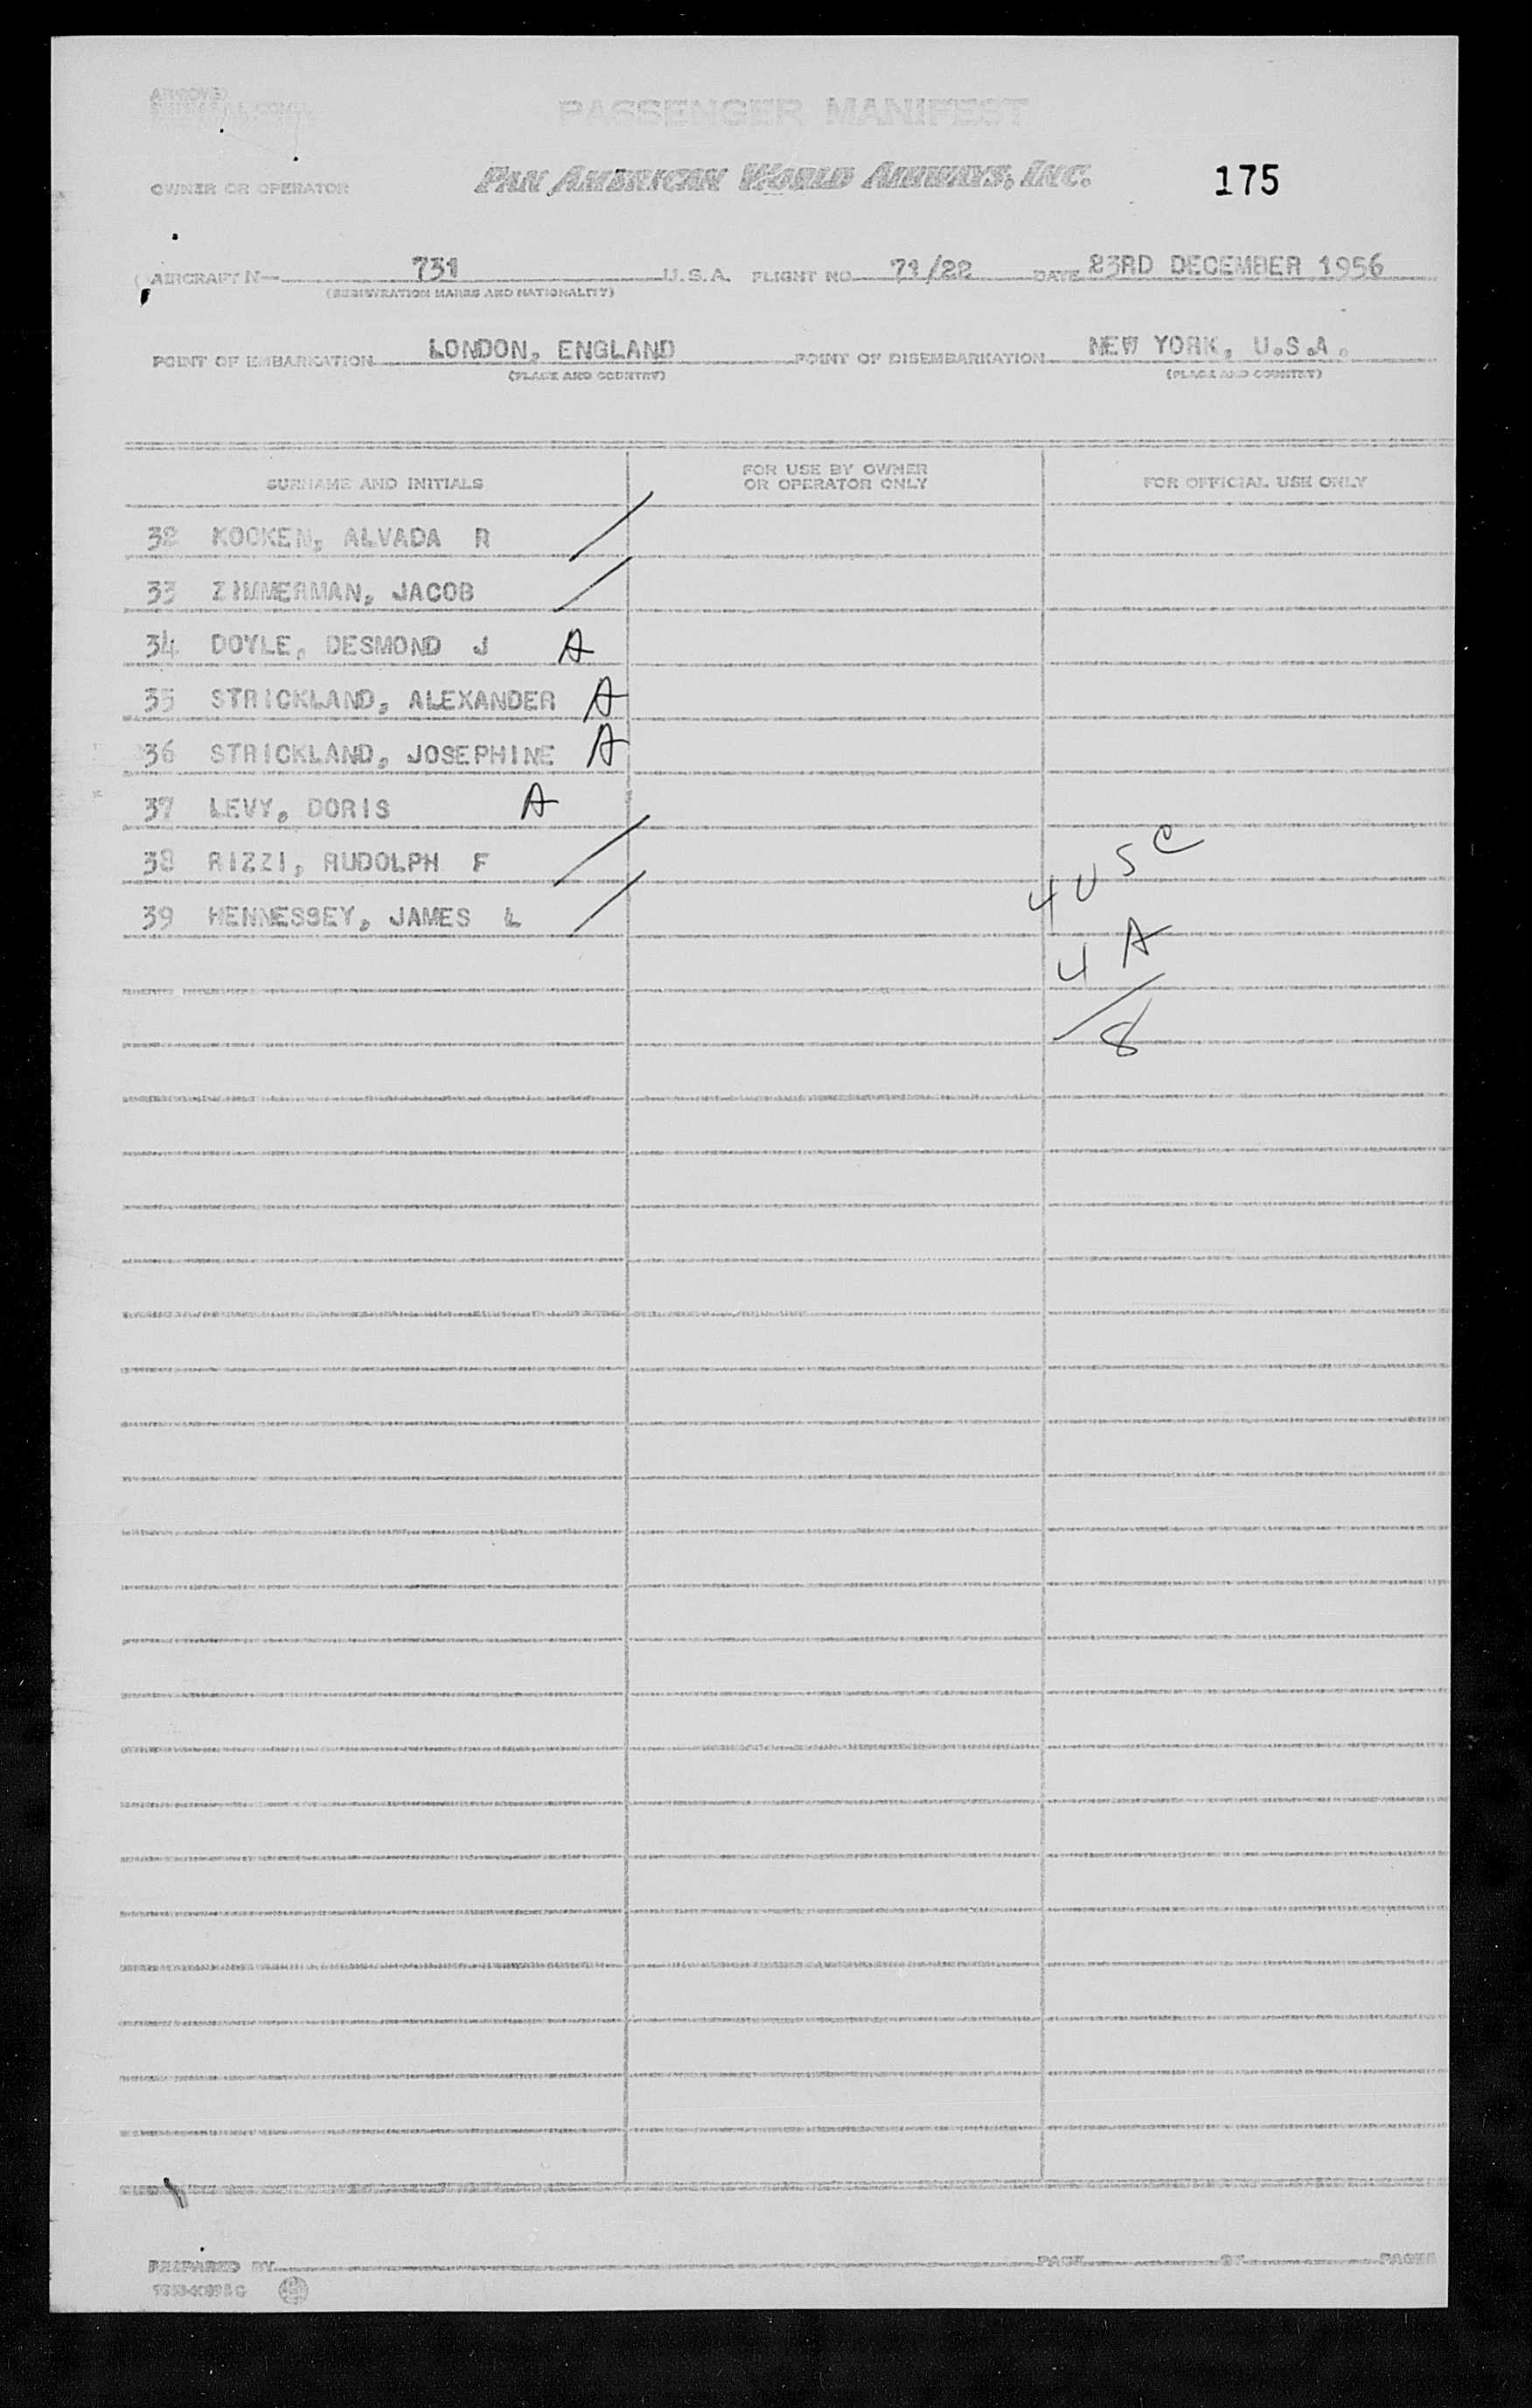 APPROVED
PASSENGER MANIFEST
OWNER OR OPERATOR PAN AMERICAN WORLD AIRWAYS, INC. 175
AIRCRAFT N— 731 U.S.A. FLIGHT NO 71/22 DATE 23RD DECEMBER 1956
(REGISTRATION MARKS AND NATIONALITY)
POINT OF EMBARKATION LONDON, ENGLAND POINT OF DISEMBARKATION NEW YORK, U.S.A.
(PLACE AND COUNTRY) (PLACE AND COUNTRY)
SURNAME AND INITIALS FOR USE BY OWNER OR OPERATOR ONLY FOR OFFICIAL USE ONLY
32 KOOKEN, ALVADA R /
33 ZIMMERMAN, JACOB /
34 DOYLE, DESMOND J A
35 STRICKLAND, ALEXANDER A
36 STRICKLAND, JOSEPHINE A
37 LEVY, DORIS A
38 RIZZI, RUDOLPH F /
39 HENNESSEY, JAMES L /
4 USC
4 A
8
PREPARED BY PAGE OF PAGES